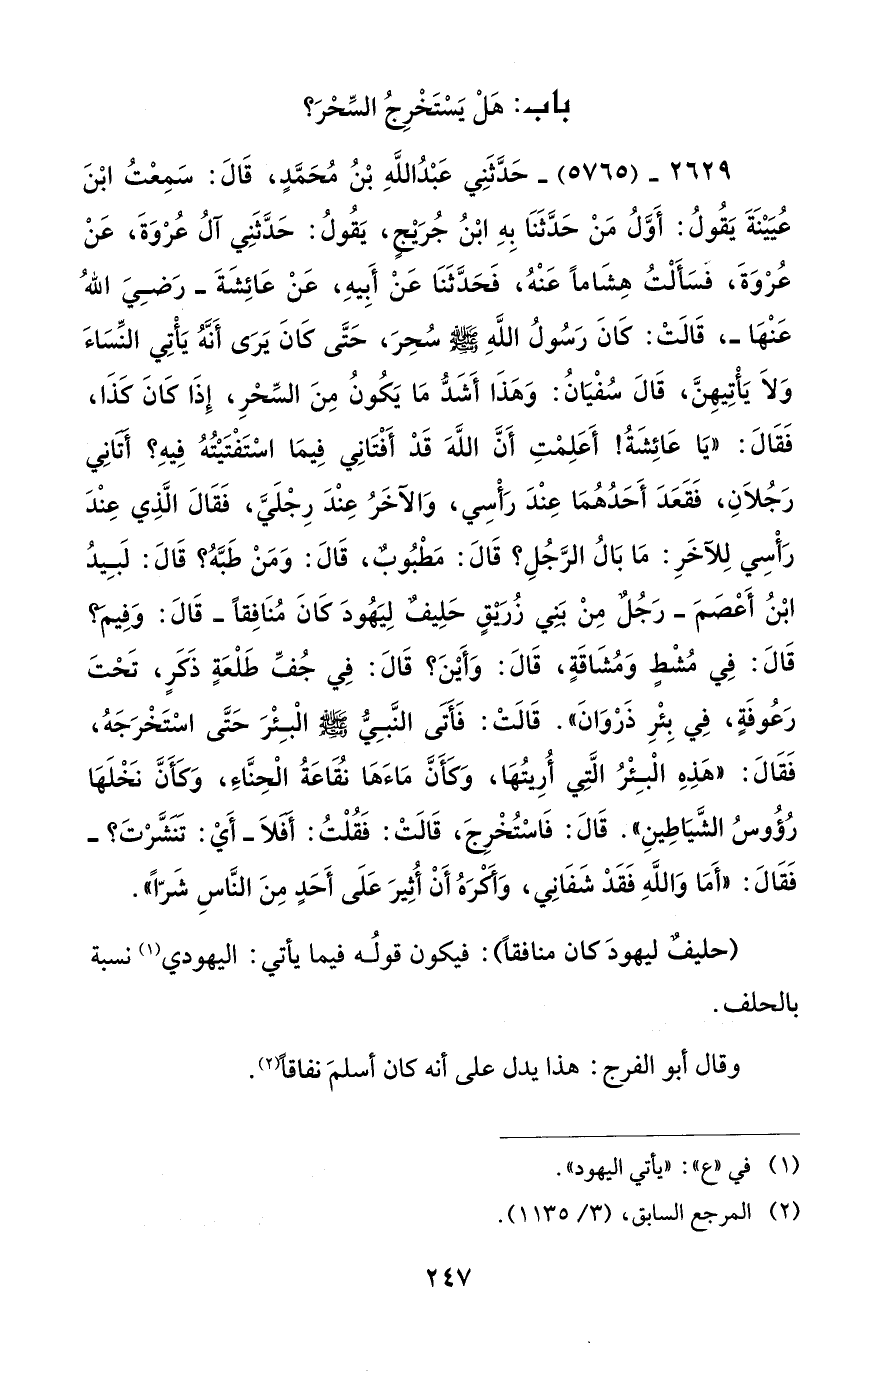 باب: هَلْ يَسْتَخْرِجُ السِّحْرَ؟
٢٦٢٩ ـ (٥٧٦٥) ـ حَدَّثَنِي عَبْدُاللَّهِ بْنُ مُحَمَّدٍ، قَالَ: سَمِعْتُ ابْنَ
عُيَيْنَةَ يَقُولُ: أَوَّلُ مَنْ حَدَّثَنَا بِهِ ابْنُ جُرَيْجٍ، يَقُولُ: حَدَّثَنِي آلُ عُرْوَةَ، عَنْ
عُرْوَةَ، فَسَأَلْتُ هِشَاماً عَنْهُ، فَحَدَّثَنَا عَنْ أَبِيهِ، عَنْ عَائِشَةَ ـ رَضِيَ اللهُ
عَنْهَا ـ، قَالَتْ: كَانَ رَسُولُ اللَّهِ ﷺ سُحِرَ، حَتَّى كَانَ يَرَى أَنَّهُ يَأْتِي النِّسَاءَ
وَلاَ يَأْتِيهِنَّ، قَالَ سُفْيَانُ: وَهَذَا أَشَدُّ مَا يَكُونُ مِنَ السِّحْرِ، إِذَا كَانَ كَذَا،
فَقَالَ: «يَا عَائِشَةُ! أَعَلِمْتِ أَنَّ اللَّهَ قَدْ أَفْتَانِي فِيمَا اسْتَفْتَيْتُهُ فِيهِ؟ أَتَانِي
رَجُلاَنِ، فَقَعَدَ أَحَدُهُمَا عِنْدَ رَأْسِي، وَالآخَرُ عِنْدَ رِجْلَيَّ، فَقَالَ الَّذِي عِنْدَ
رَأْسِي لِلآخَرِ: مَا بَالُ الرَّجُلِ؟ قَالَ: مَطْبُوبٌ، قَالَ: وَمَنْ طَبَّهُ؟ قَالَ: لَبِيدُ
ابْنُ أَعْصَمَ ـ رَجُلٌ مِنْ بَنِي زُرَيْقٍ حَلِيفٌ لِيَهُودَ كَانَ مُنَافِقاً ـ قَالَ: وَفِيمَ؟
قَالَ: فِي مُشْطٍ وَمُشَاقَةٍ، قَالَ: وَأَيْنَ؟ قَالَ: فِي جُفِّ طَلْعَةٍ ذَكَرٍ، تَحْتَ
رَعُوفَةٍ، فِي بِئْرِ ذَرْوَانَ». قَالَتْ: فَأَتَى النَّبِيُّ ﷺ الْبِئْرَ حَتَّى اسْتَخْرَجَهُ،
فَقَالَ: «هَذِهِ الْبِئْرُ الَّتِي أُرِيتُهَا، وَكَأَنَّ مَاءَهَا نُقَاعَةُ الْحِنَّاءِ، وَكَأَنَّ نَخْلَهَا
رُؤُوسُ الشَّيَاطِينِ». قَالَ: فَاسْتُخْرِجَ، قَالَتْ: فَقُلْتُ: أَفَلاَ ـ أَيْ: تَنَشَّرْتَ؟ ـ
فَقَالَ: «أَمَا وَاللَّهِ فَقَدْ شَفَانِي، وَأَكْرَهُ أَنْ أُثِيرَ عَلَى أَحَدٍ مِنَ النَّاسِ شَرّاً».
(حليفٌ ليهودَ كان منافقاً): فيكون قولُه فيما يأتي: اليهودي(١) نسبة
بالحلف.
وقال أبو الفرج: هذا يدل على أنه كان أسلمَ نفاقاً(٢).
(١) في «ع»: «يأتي اليهود».
(٢) المرجع السابق، (٣/ ١١٣٥).
٢٤٧